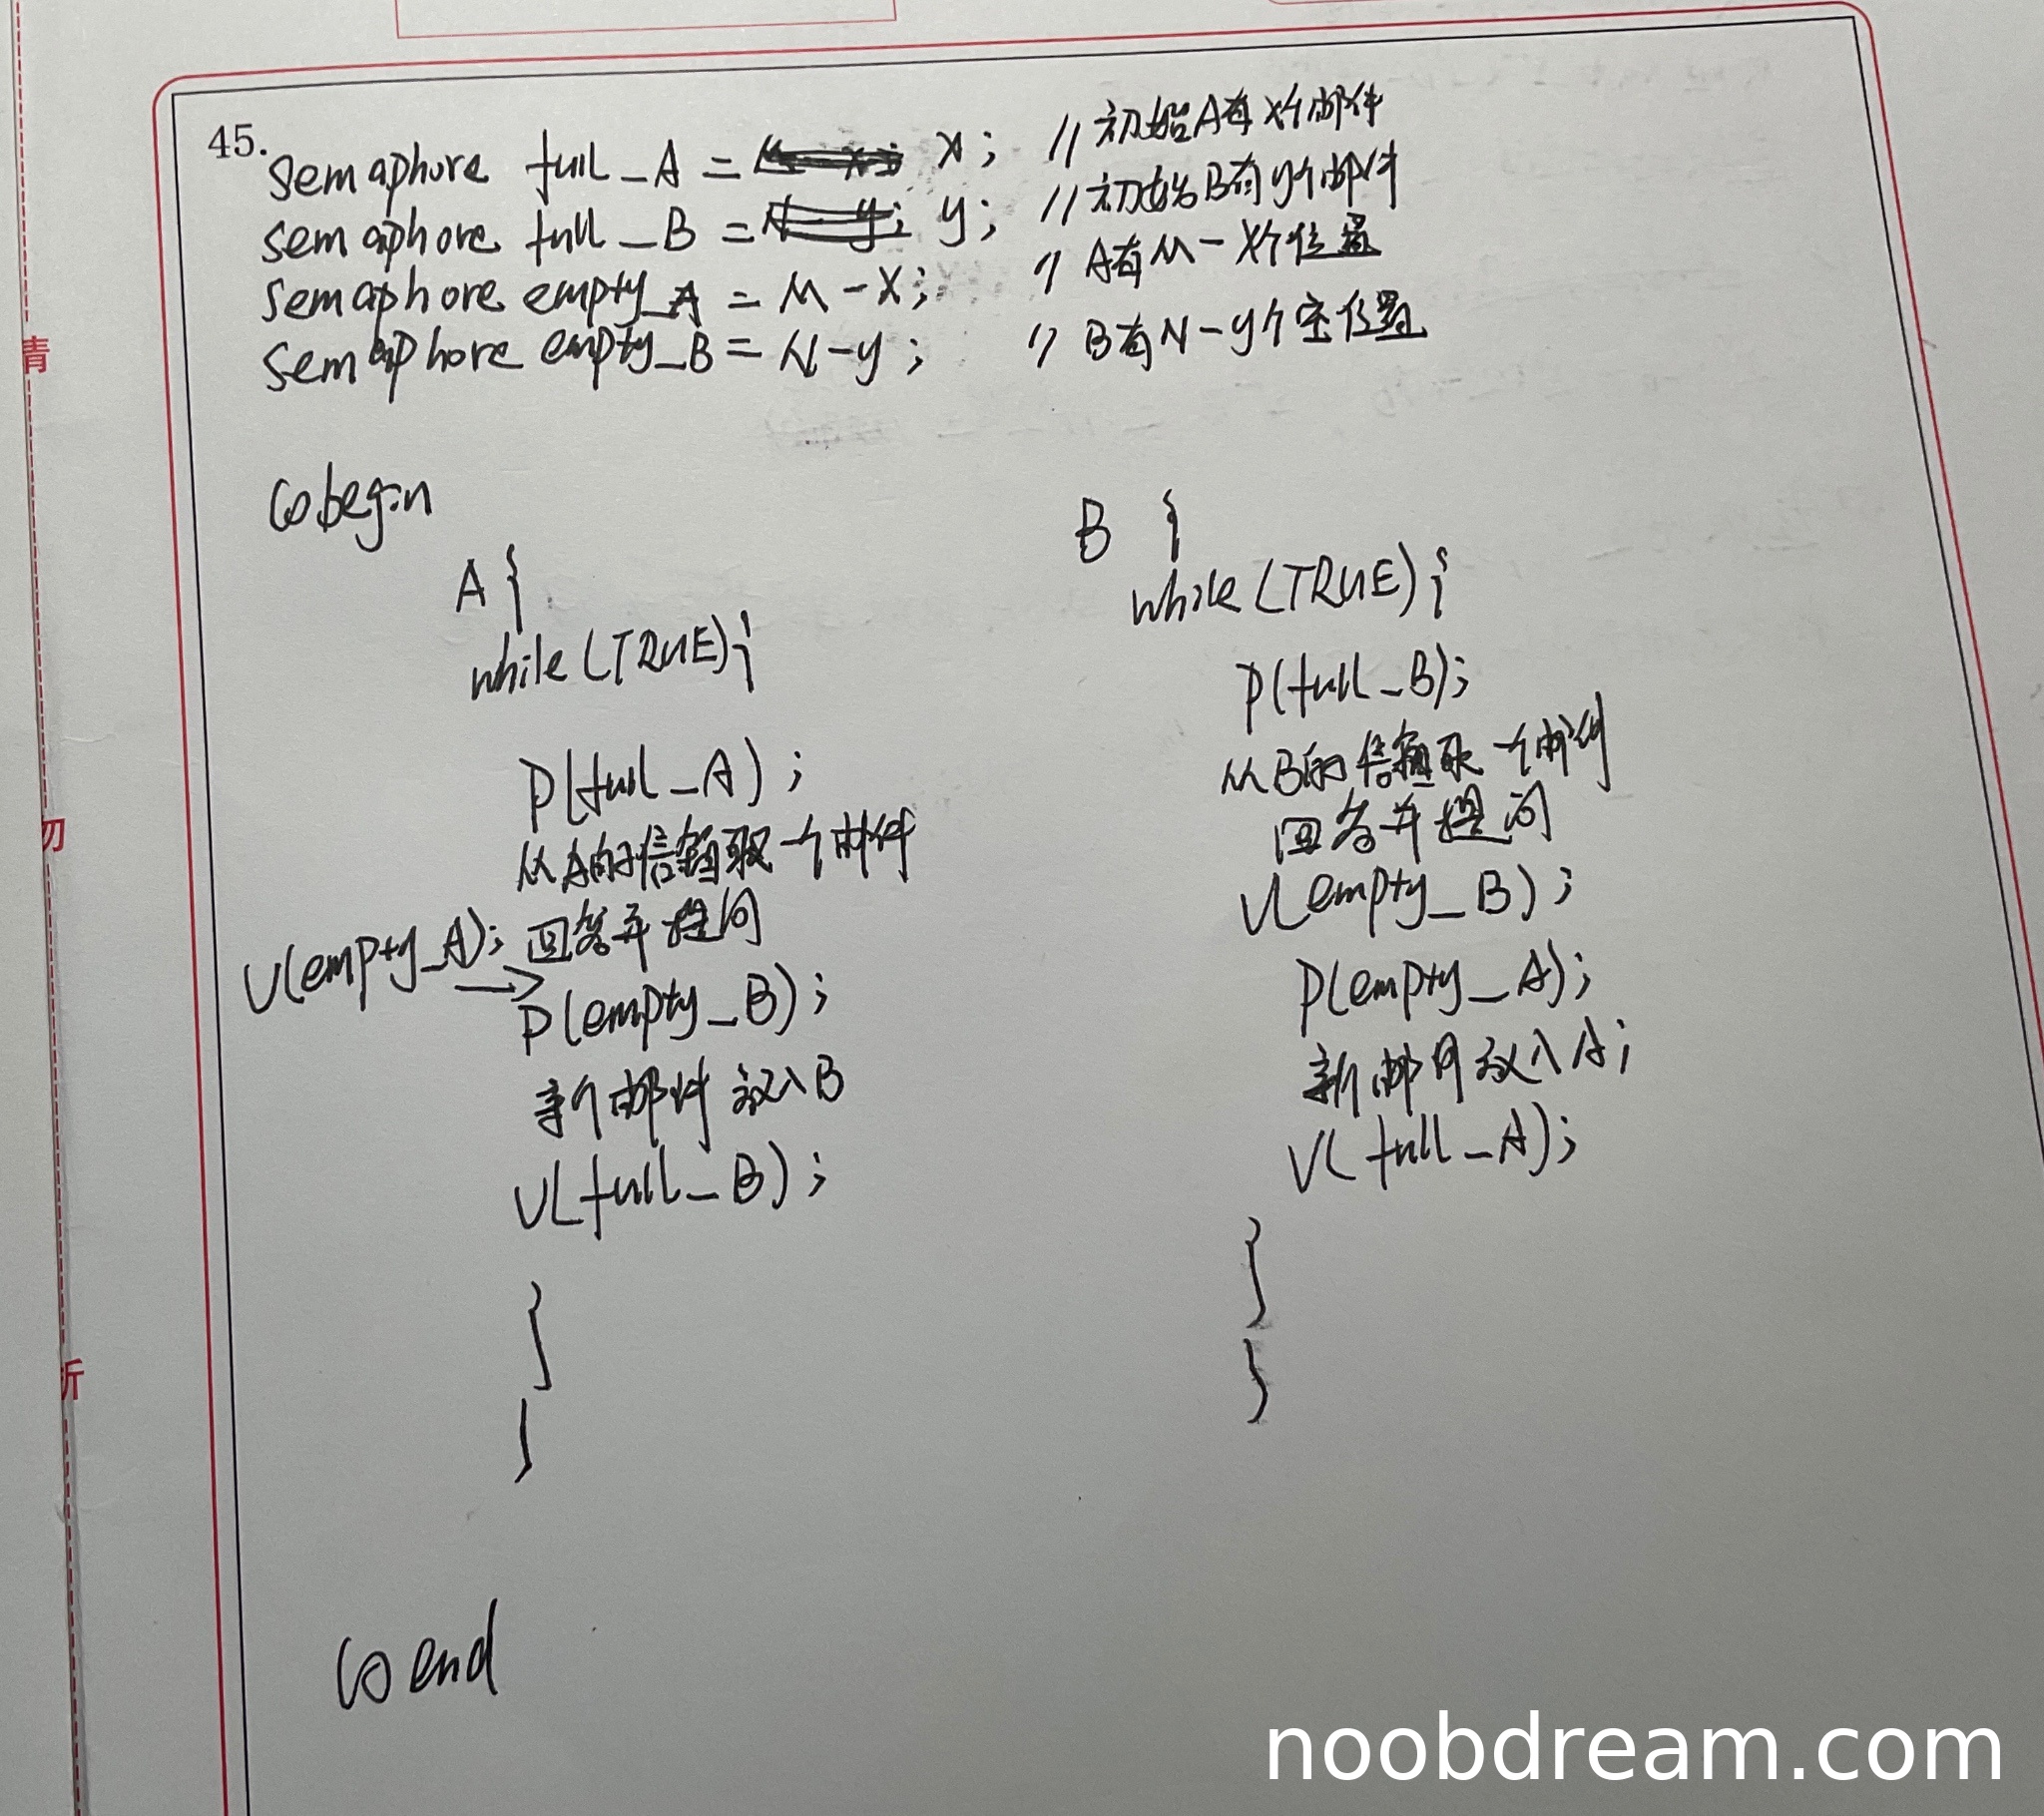 45.
semaphore full_A = x; // 初始A有x个邮件
semaphore full_B = y; // 初始B有y个邮件
semaphore empty_A = M-x; // A有M-x个位置
semaphore empty_B = N-y; // B有N-y个空位置
cobegin
A {
while(TRUE){
P(full_A);
从A的信箱取一个邮件
回答并提问
V(empty_A); →
P(empty_B);
新邮件放入B
V(full_B);
}
}
B {
while(TRUE){
P(full_B);
从B的信箱取一个邮件
回答并提问
V(empty_B);
P(empty_A);
新邮件放入A;
V(full_A);
}
}
coend
请
勿
折
noobdream.com